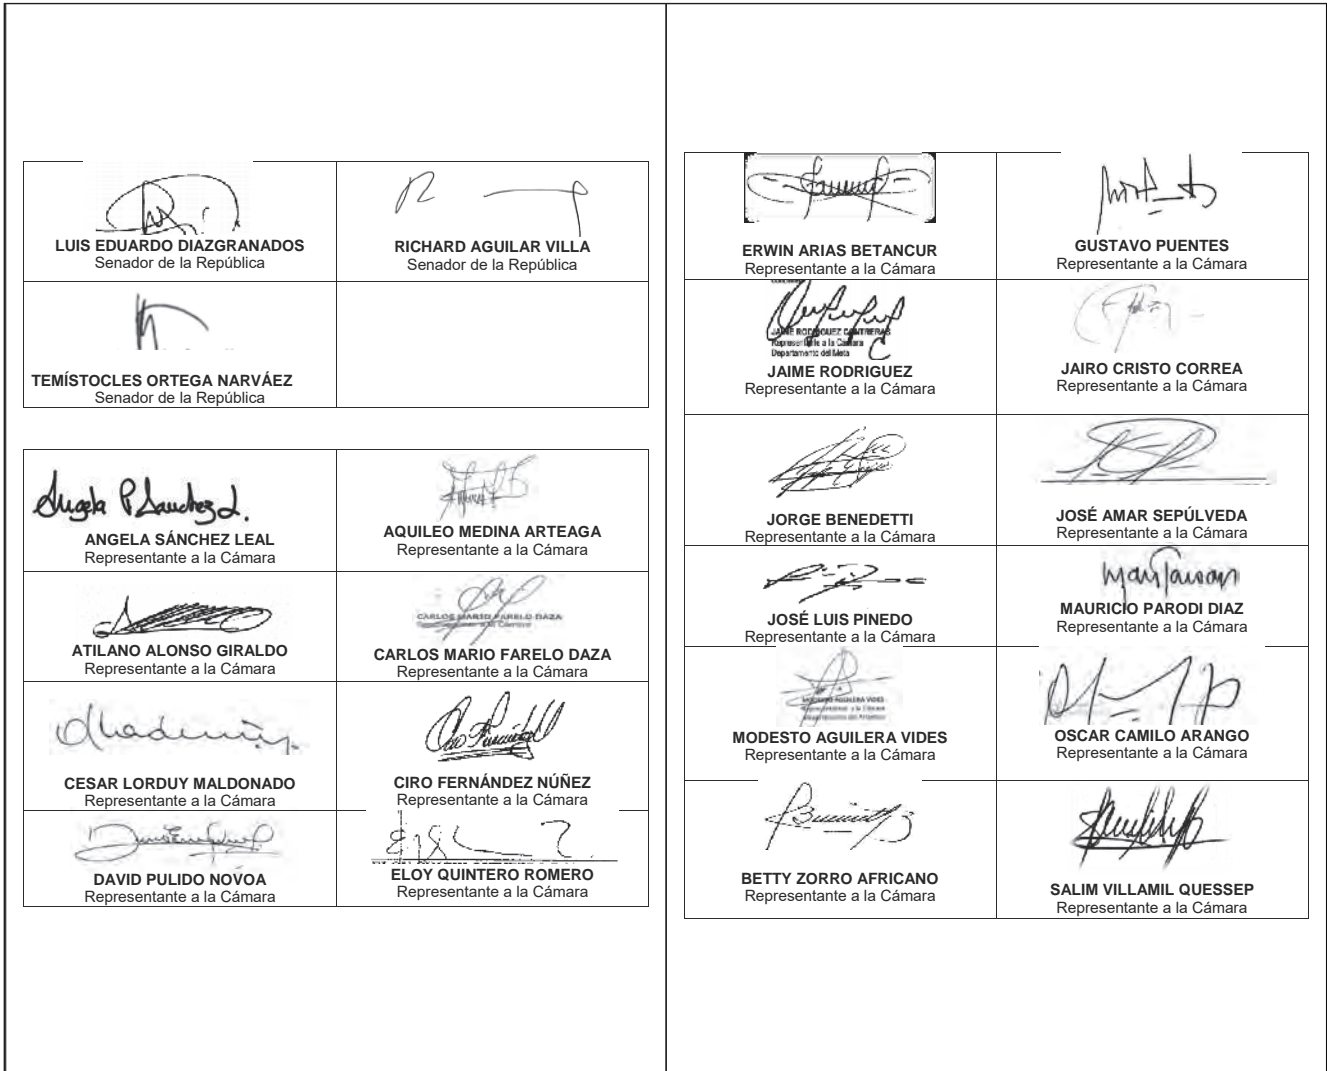 LUIS EDUARDO DIAZGRANADOS
Senador de la República
RICHARD AGUILAR VILLA
Senador de la República
TEMÍSTOCLES ORTEGA NARVÁEZ
Senador de la República
Angela P Sanchez L.
ANGELA SÁNCHEZ LEAL
Representante a la Cámara
AQUILEO MEDINA ARTEAGA
Representante a la Cámara
ATILANO ALONSO GIRALDO
Representante a la Cámara
CARLOS MARIO FARELO DAZA
Representante a la Cámara
CARLOS MARIO FARELO DAZA
Representante a la Cámara
CESAR LORDUY MALDONADO
Representante a la Cámara
CIRO FERNÁNDEZ NÚÑEZ
Representante a la Cámara
DAVID PULIDO NOVOA
Representante a la Cámara
ELOY QUINTERO ROMERO
Representante a la Cámara
ERWIN ARIAS BETANCUR
Representante a la Cámara
GUSTAVO PUENTES
Representante a la Cámara
JAIME RODRIGUEZ CONTRERAS
Representante a la Camara
Departamento del Meta
JAIME RODRIGUEZ
Representante a la Cámara
JAIRO CRISTO CORREA
Representante a la Cámara
JORGE BENEDETTI
Representante a la Cámara
JOSÉ AMAR SEPÚLVEDA
Representante a la Cámara
JOSÉ LUIS PINEDO
Representante a la Cámara
MAURICIO PARODI DIAZ
Representante a la Cámara
MODESTO AGUILERA VIDES
Representante a la Cámara
MODESTO AGUILERA VIDES
Representante a la Cámara
OSCAR CAMILO ARANGO
Representante a la Cámara
BETTY ZORRO AFRICANO
Representante a la Cámara
SALIM VILLAMIL QUESSEP
Representante a la Cámara